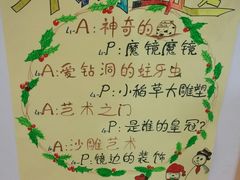 A:神奇的
P:魔镜魔镜
A:爱钻洞的蛀牙虫
P:小稻草大雕塑
A:艺术之门
P:是谁的皇冠?
A:沙雕艺术
P:镜边的装饰